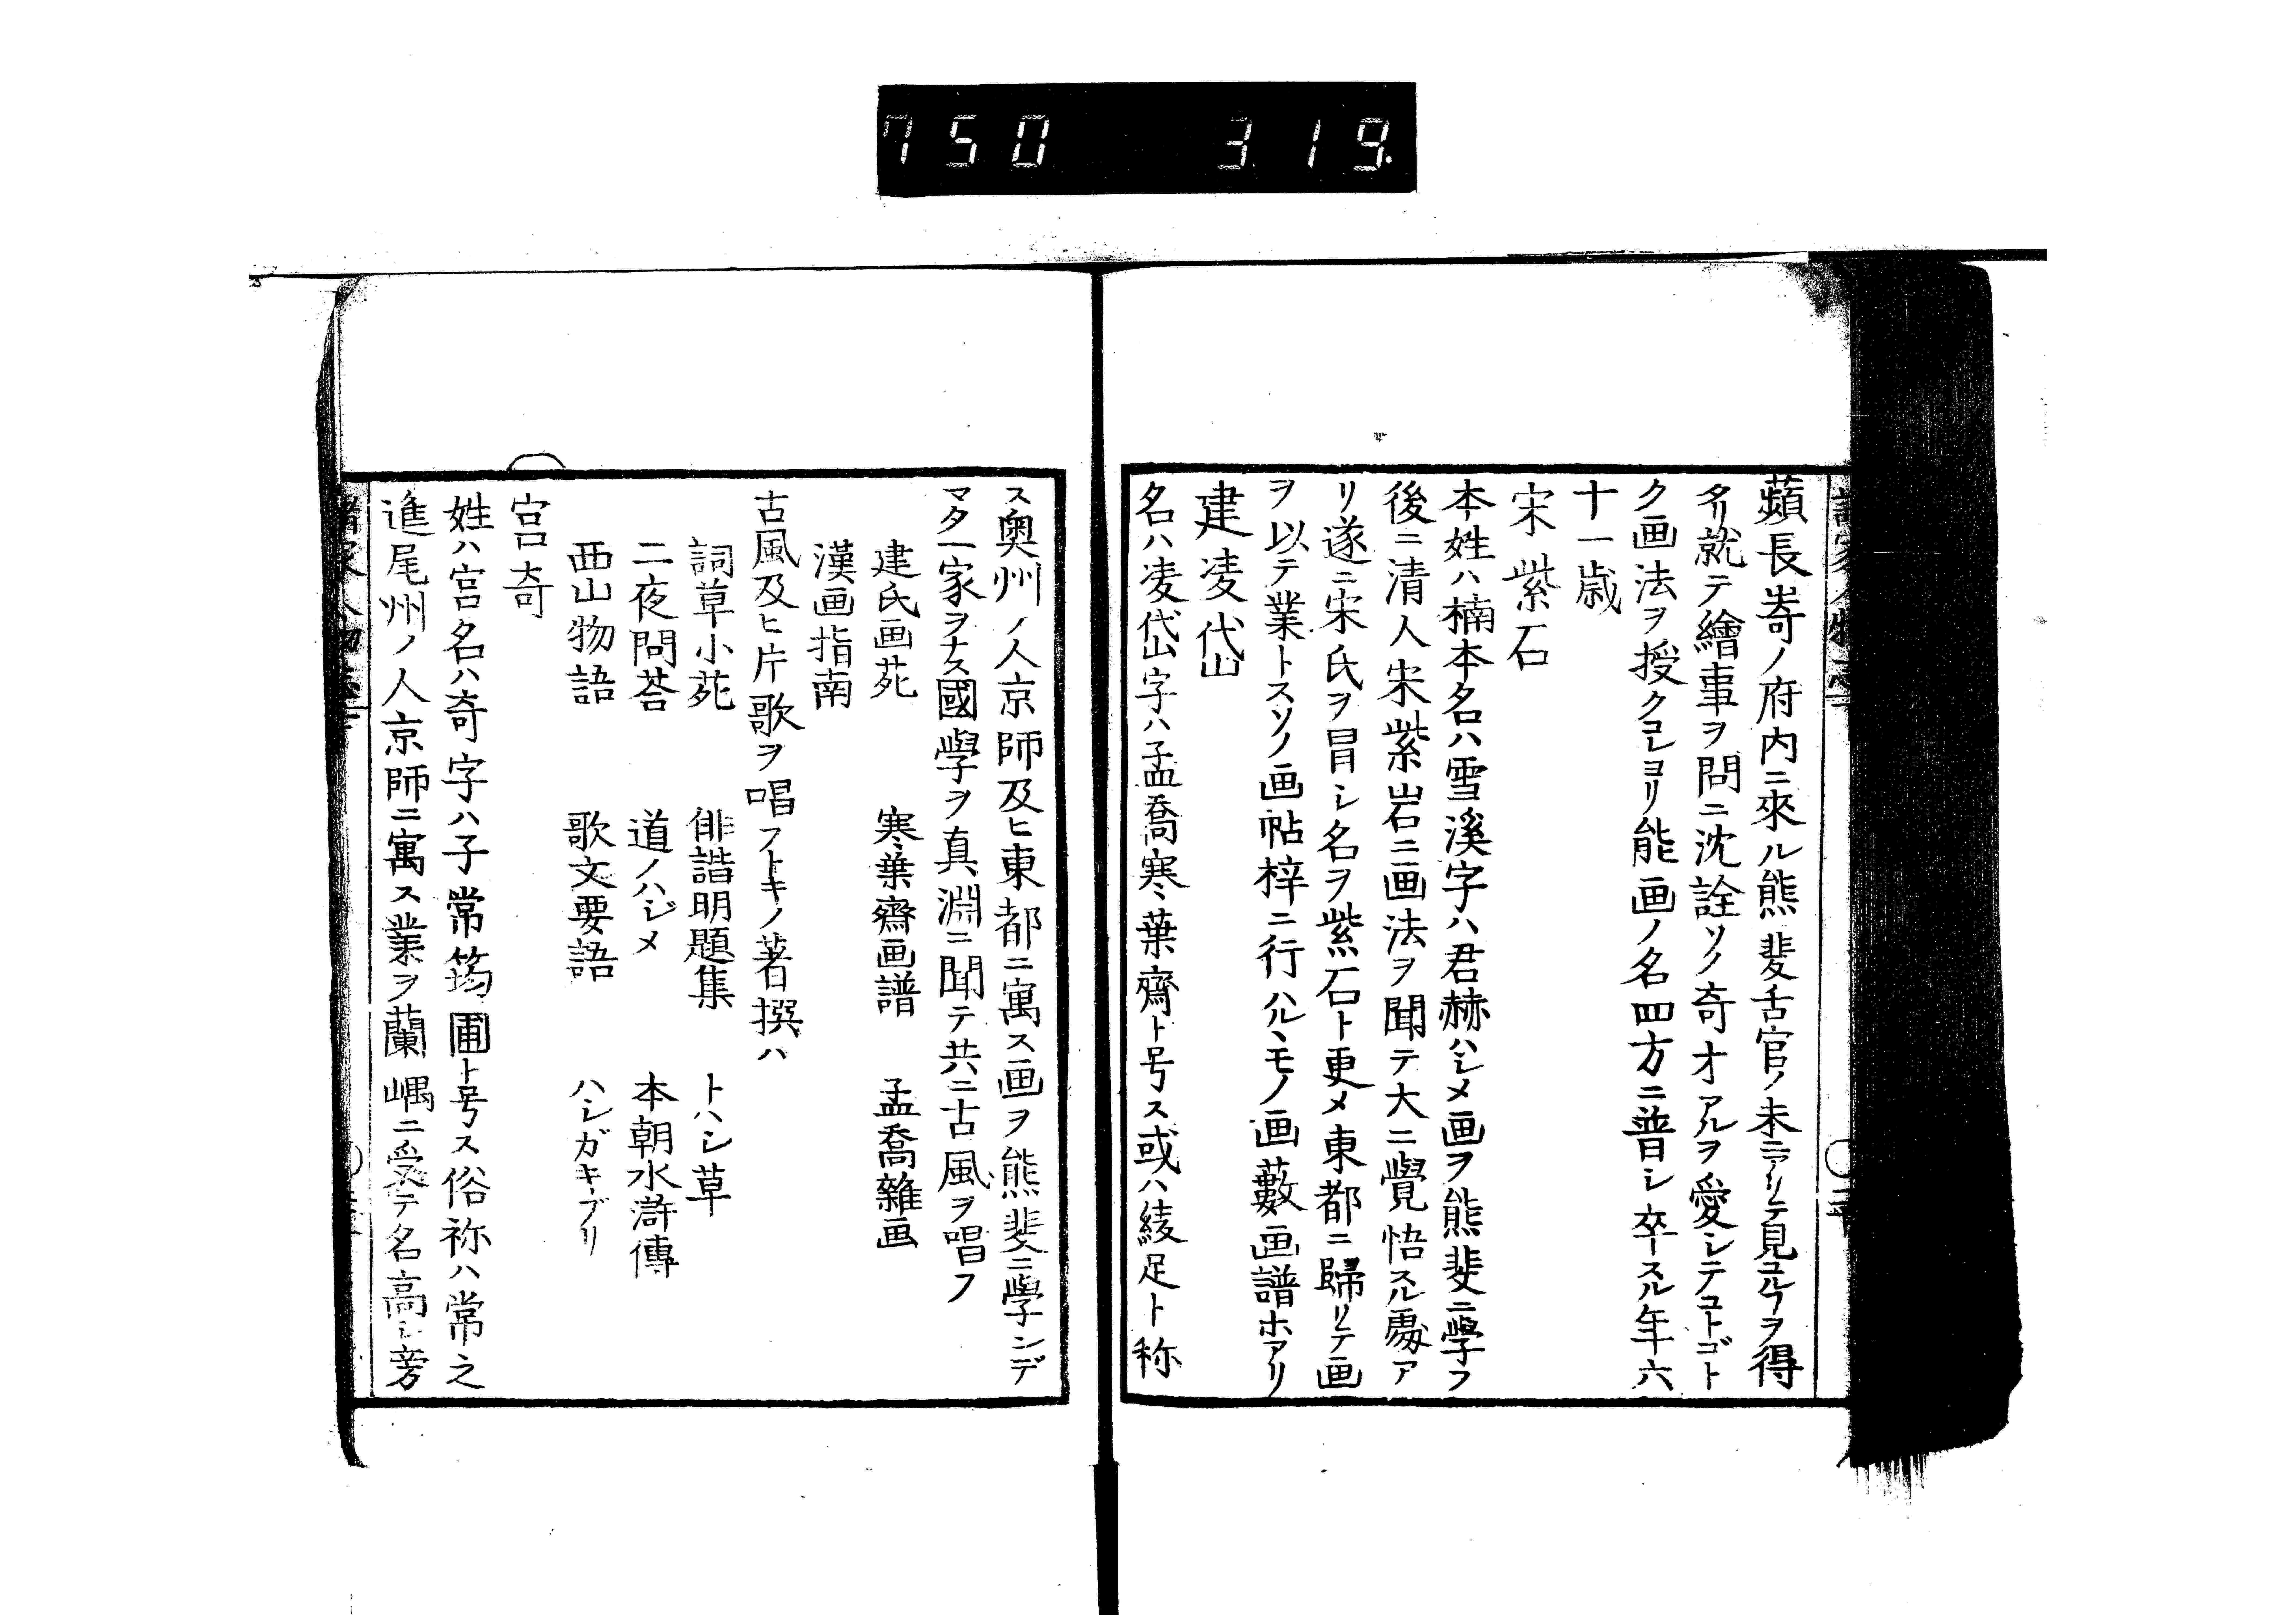 750 319.
蘋長﨑ノ府内ニ來ル熊斐舌官ノ末ニアリテ見ユルヿヲ得
タリ就テ繪事ヲ問ニ沈詮ソノ奇才アルヲ愛シテコトゴト
ク画法ヲ授クコレヨリ能画ノ名四方ニ普シ卒スル年六
十一歳
宋紫石
本姓ハ楠本名ハ雪溪字ハ君赫ハシメ画ヲ熊斐ニ學フ
後ニ清人宋紫岩ニ画法ヲ聞テ大ニ覺悟スル處ア
リ遂ニ宋氏ヲ冒シ名ヲ紫石ト更メ東都ニ歸リテ画
ヲ以テ業トスソノ画帖梓ニ行ハルヽモノ画藪画譜ホアリ
建凌岱
名ハ凌岱字ハ孟喬寒葉齋ト号ス或ハ綾足ト称
ス奥州ノ人京師及ヒ東都ニ寓ス画ヲ熊斐ニ學ンデ
マタ一家ヲナス國學ヲ真淵ニ聞テ共ニ古風ヲ唱フ
建氏画苑 寒葉齋画譜 孟喬雜画
漢画指南
古風及ヒ片歌ヲ唱フトキノ著撰ハ
詞草小苑 俳諧明題集 トハシ草
二夜問荅 道ノハジメ 本朝水滸傳
西山物語 歌文要語 ハシガキブリ
宮奇
姓ハ宮名ハ奇字ハ子常筠圃ト号ス俗称ハ常之
進尾州ノ人京師ニ寓ス業ヲ蘭嵎ニ受テ名高シ旁